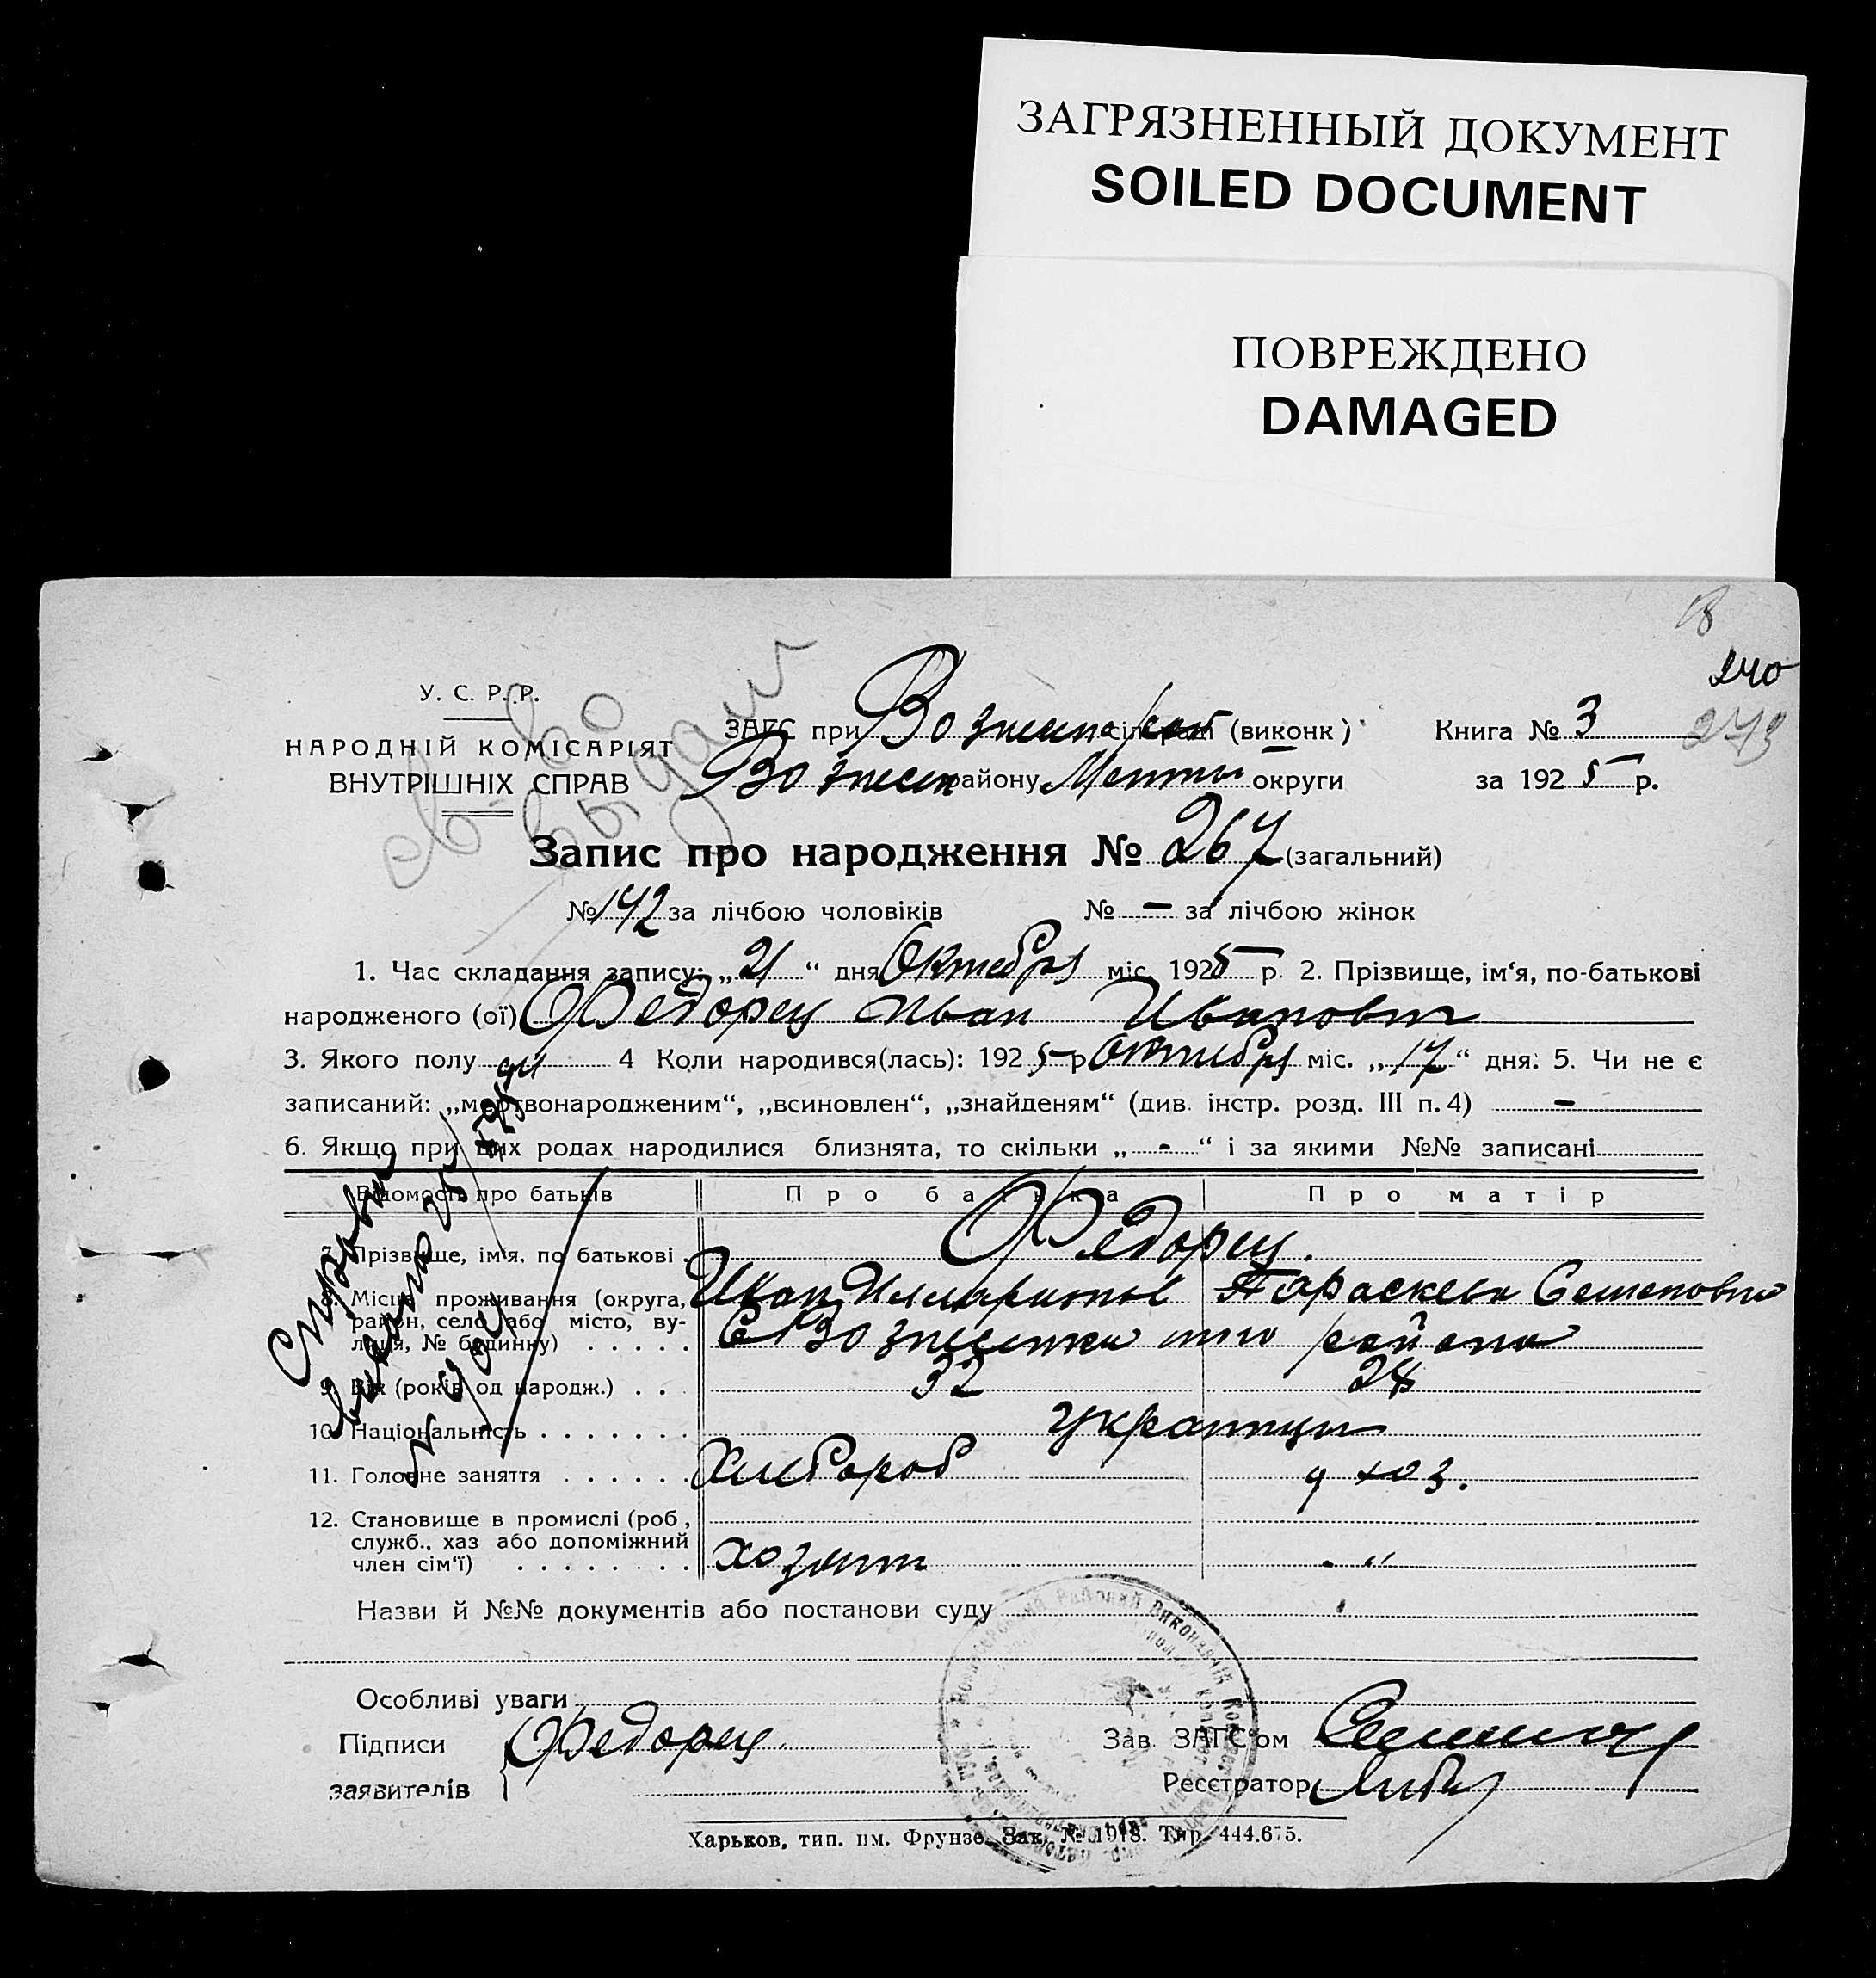 ЗАГРЯЗНЕННЫЙ ДОКУМЕНТ
SOILED DOCUMENT
ПОВРЕЖДЕНО
DAMAGED
18
240
273
У. С. Р. Р.
НАРОДНІЙ КОМІСАРІЯТ
ВНУТРІШНІХ СПРАВ
св-во
выдан
ЗАГС при сільраді (виконк) Книга № 3
району округи за 1925 р.
Запис про народження № 267 (загальний)
№ 142 за лічбою чоловіків № — за лічбою жінок
1. Час складання запису: „21“ дня Октября міс. 1925 р. 2. Прізвище, ім‘я, по-батькові
народженого (ої) Федорец Иван Иванович
3. Якого полу 4 Коли народився(лась): 1925 р Октября міс. „17“ дня: 5. Чи не є
записаний: „мертвонародженим“, „всиновлен“, „знайденям“ (див. інстр. розд. III п. 4) —
6. Якщо при цих родах народилися близнята, то скільки „-“ і за якими №№ записані
Відомость про батьків Про батька Про матір
7. Прізвище, ім‘я. по батькові Федорец.
Иван Илларионов Параскева Семеновна
8. Місце проживання (округа, район, село або місто, вулиця, № будинку) района
9. Вік (років од народж.) 32 28
10. Національність украинцы
11. Головне заняття Хлебороб д хоз.
12. Становище в промислі (роб, служб., хаз або допоміжний член сім‘ї) хозяин "
Назви й №№ документів або постанови суду
Особливі уваги
Підписи Федорец Зав. ЗАГС‘ом
заявителів Реєстратор
Харьков, тип. им. Фрунзе. Зак. № 1918. Тир. 444.675.